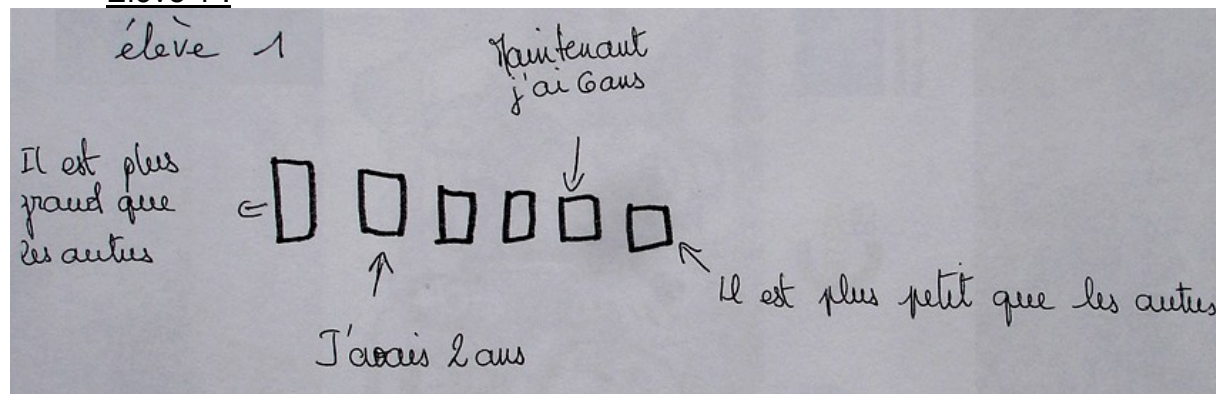 élève 1
Maintenant
j'ai 6 ans
Il est plus
grand que
les autres
J'avais 2 ans
Il est plus petit que les autres